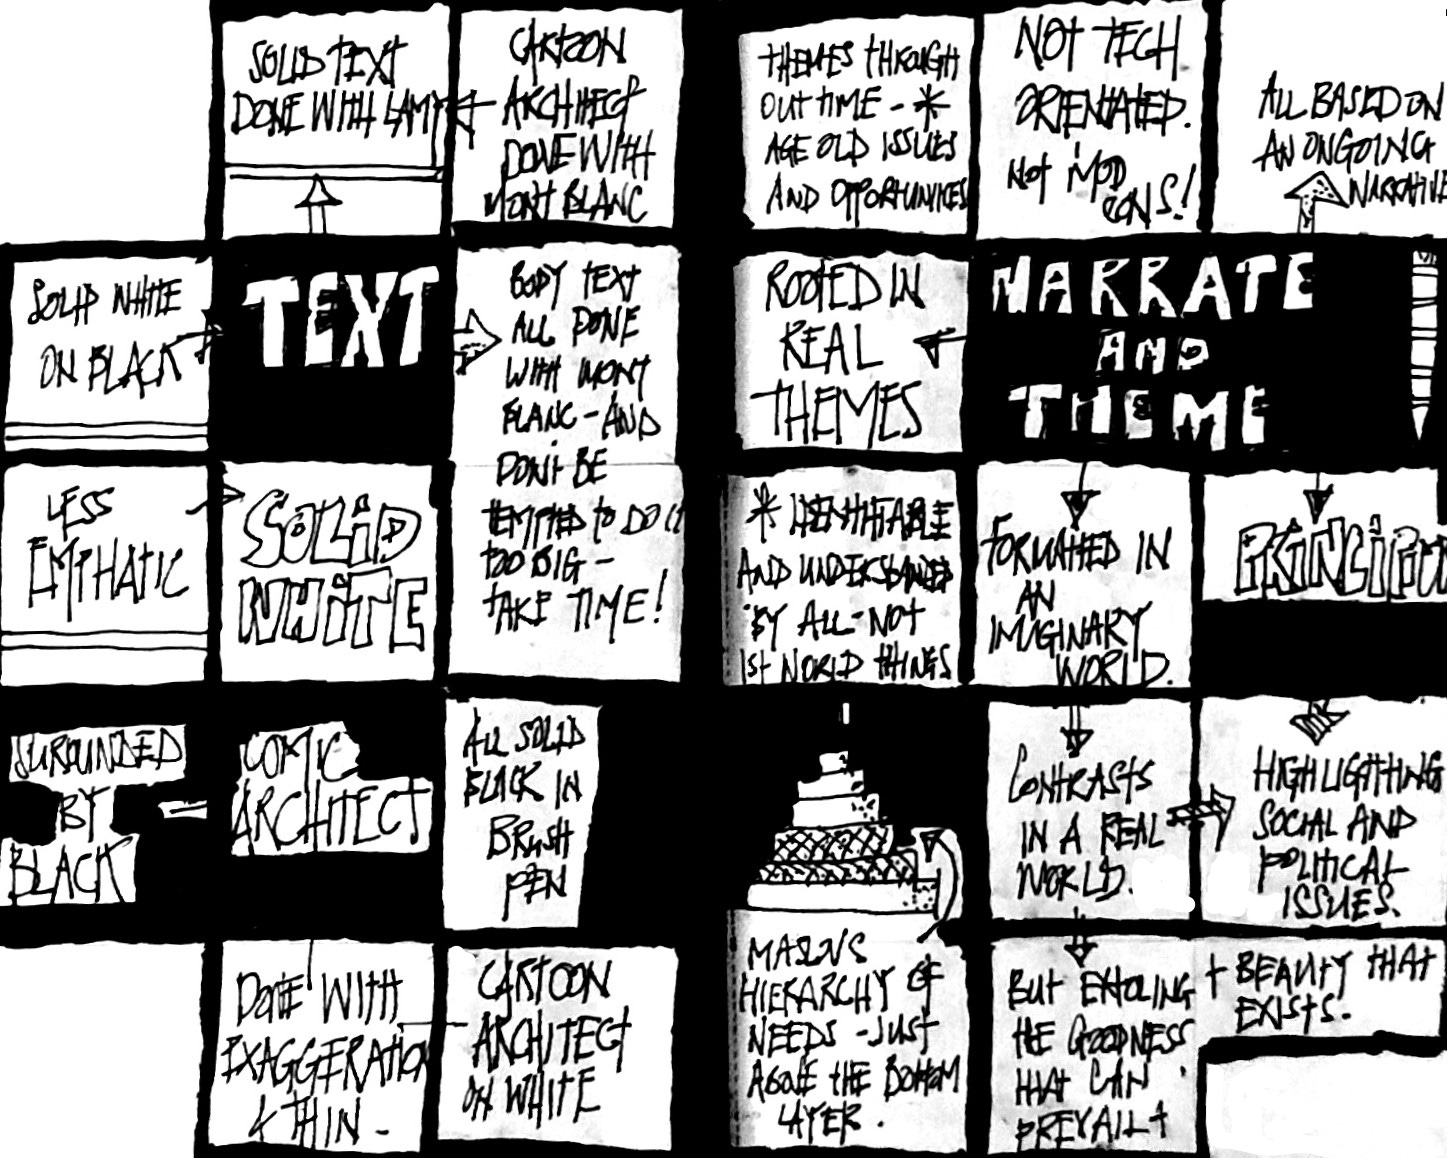 SOLID TEXT
DONE WITH LAMY
CARTOON
ARCHITECT
DONE WITH
MONT BLANC
THEMES THROUGH
OUT TIME - *
AGE OLD ISSUES
AND OPPORTUNITIES
NOT TECH
ORIENTATED.
NOT MOD
CONS!
ALL BASED ON
AN ONGOING
NARRATIVE
SOLID WHITE
ON BLACK
TEXT
BODY TEXT
ALL DONE
WITH MONT
BLANC - AND
DON'T BE
TEMPTED TO DO IT
TOO BIG -
TAKE TIME!
ROOTED IN
REAL
THEMES
NARRATE
AND
THEME
LESS
EMPHATIC
SOLID
WHITE
* IDENTIFIABLE
AND UNDERSTANDED
BY ALL - NOT
1ST WORLD THINGS
FORMATTED IN
AN
IMAGINARY
WORLD.
SURROUNDED
BY
BLACK
COMIC
ARCHITECT
ALL SOLID
BLACK IN
BRUSH
PEN
CONTRASTS
IN A REAL
WORLD.
HIGHLIGHTING
SOCIAL AND
POLITICAL
ISSUES.
DONE WITH
EXAGGERATION
& THIN -
CARTOON
ARCHITECT
ON WHITE
HIERARCHY OF
NEEDS - JUST
ABOVE THE BOTTOM
LAYER.
BUT EXTOLING
THE GOODNESS
THAT CAN
PREVAIL +
+ BEAUTY THAT
EXISTS.